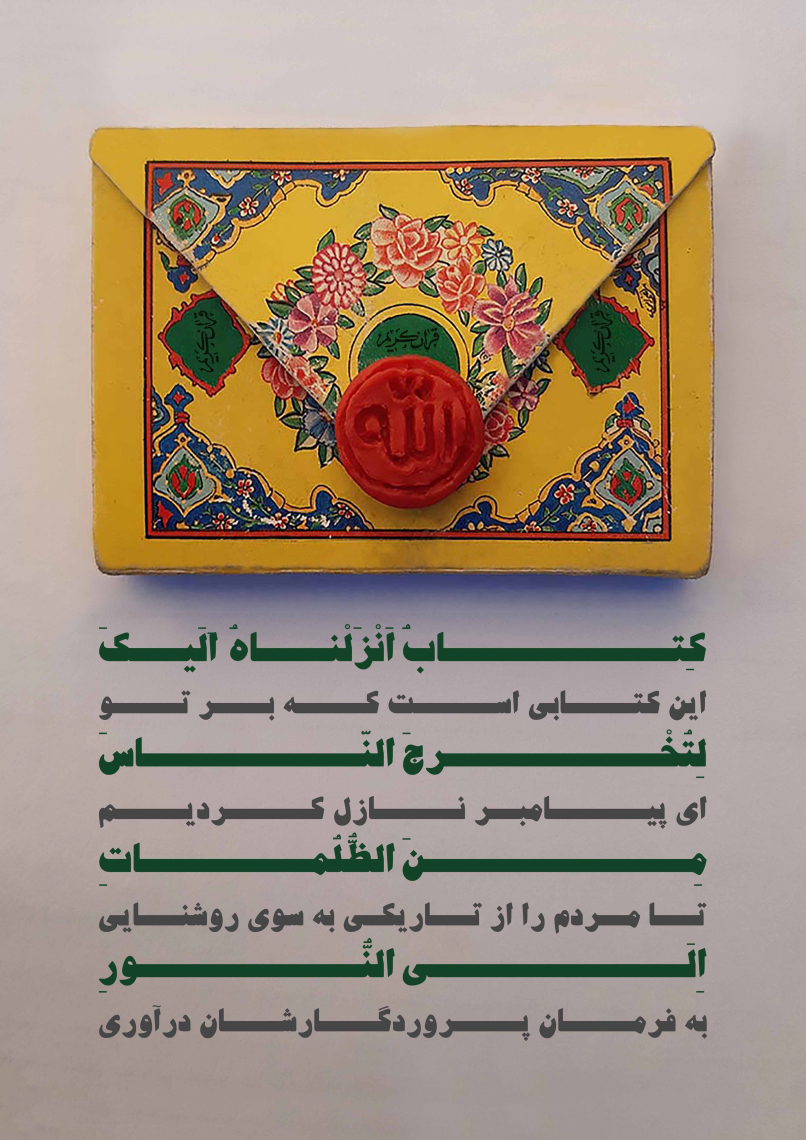 قرآن کریم
قرآن کریم
قرآن کریم
الله
کِتابٌ اَنْزَلْناهُ اَلَیکَ
این کتابی است که بر تو
لِتُخْرِجَ النّاسَ
ای پیامبر نازل کردیم
مِنَ الظُّلُماتِ
تا مردم را از تاریکی به سوی روشنایی
اِلَی النُّورِ
به فرمان پروردگارشان درآوری